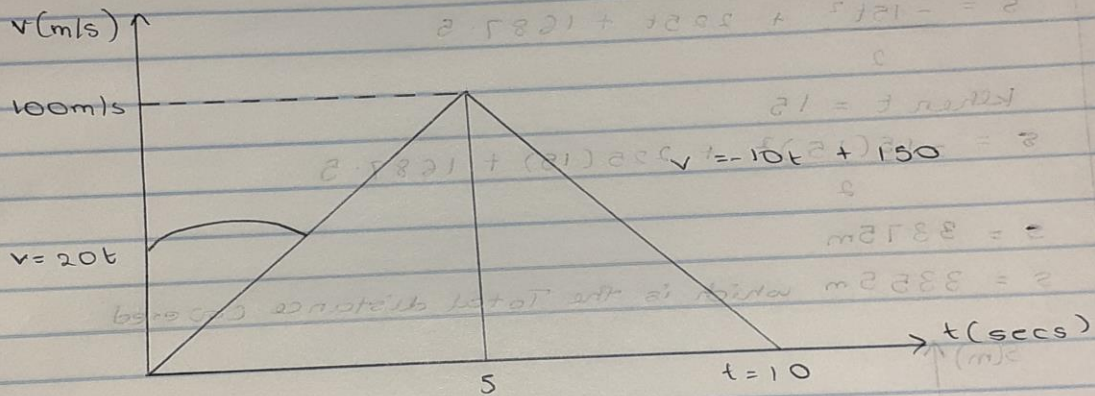 v(m/s)
100m/s
v = -10t + 150
v = 20t
t(secs)
5
t = 10